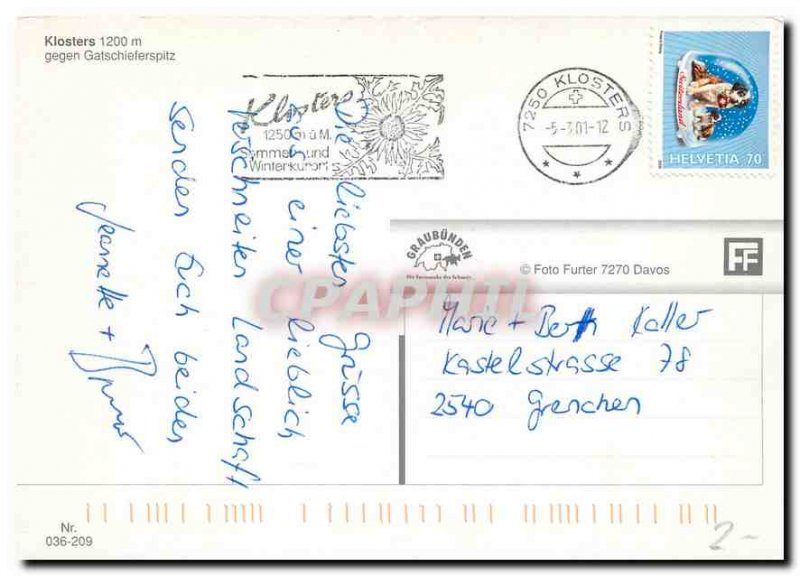 Klosters 1200 m
gegen Gatschieferspitz
Klosters
1250 m ü. M.
ommer- und
Winterkurort
7250 KLOSTERS
-5-3.01-12
HELVETIA 70
Die liebsten Grüsse
aus einer lieblich
verschneiten Landschaft
senden Euch beiden
Jeannette +
GRAUBÜNDEN
Die Ferienecke der Schweiz
© Foto Furter 7270 Davos
FF
CPAPHIL
Marie + Kaller
Kastelstrasse 78
2540 Grenchen
Nr.
036-209
2-